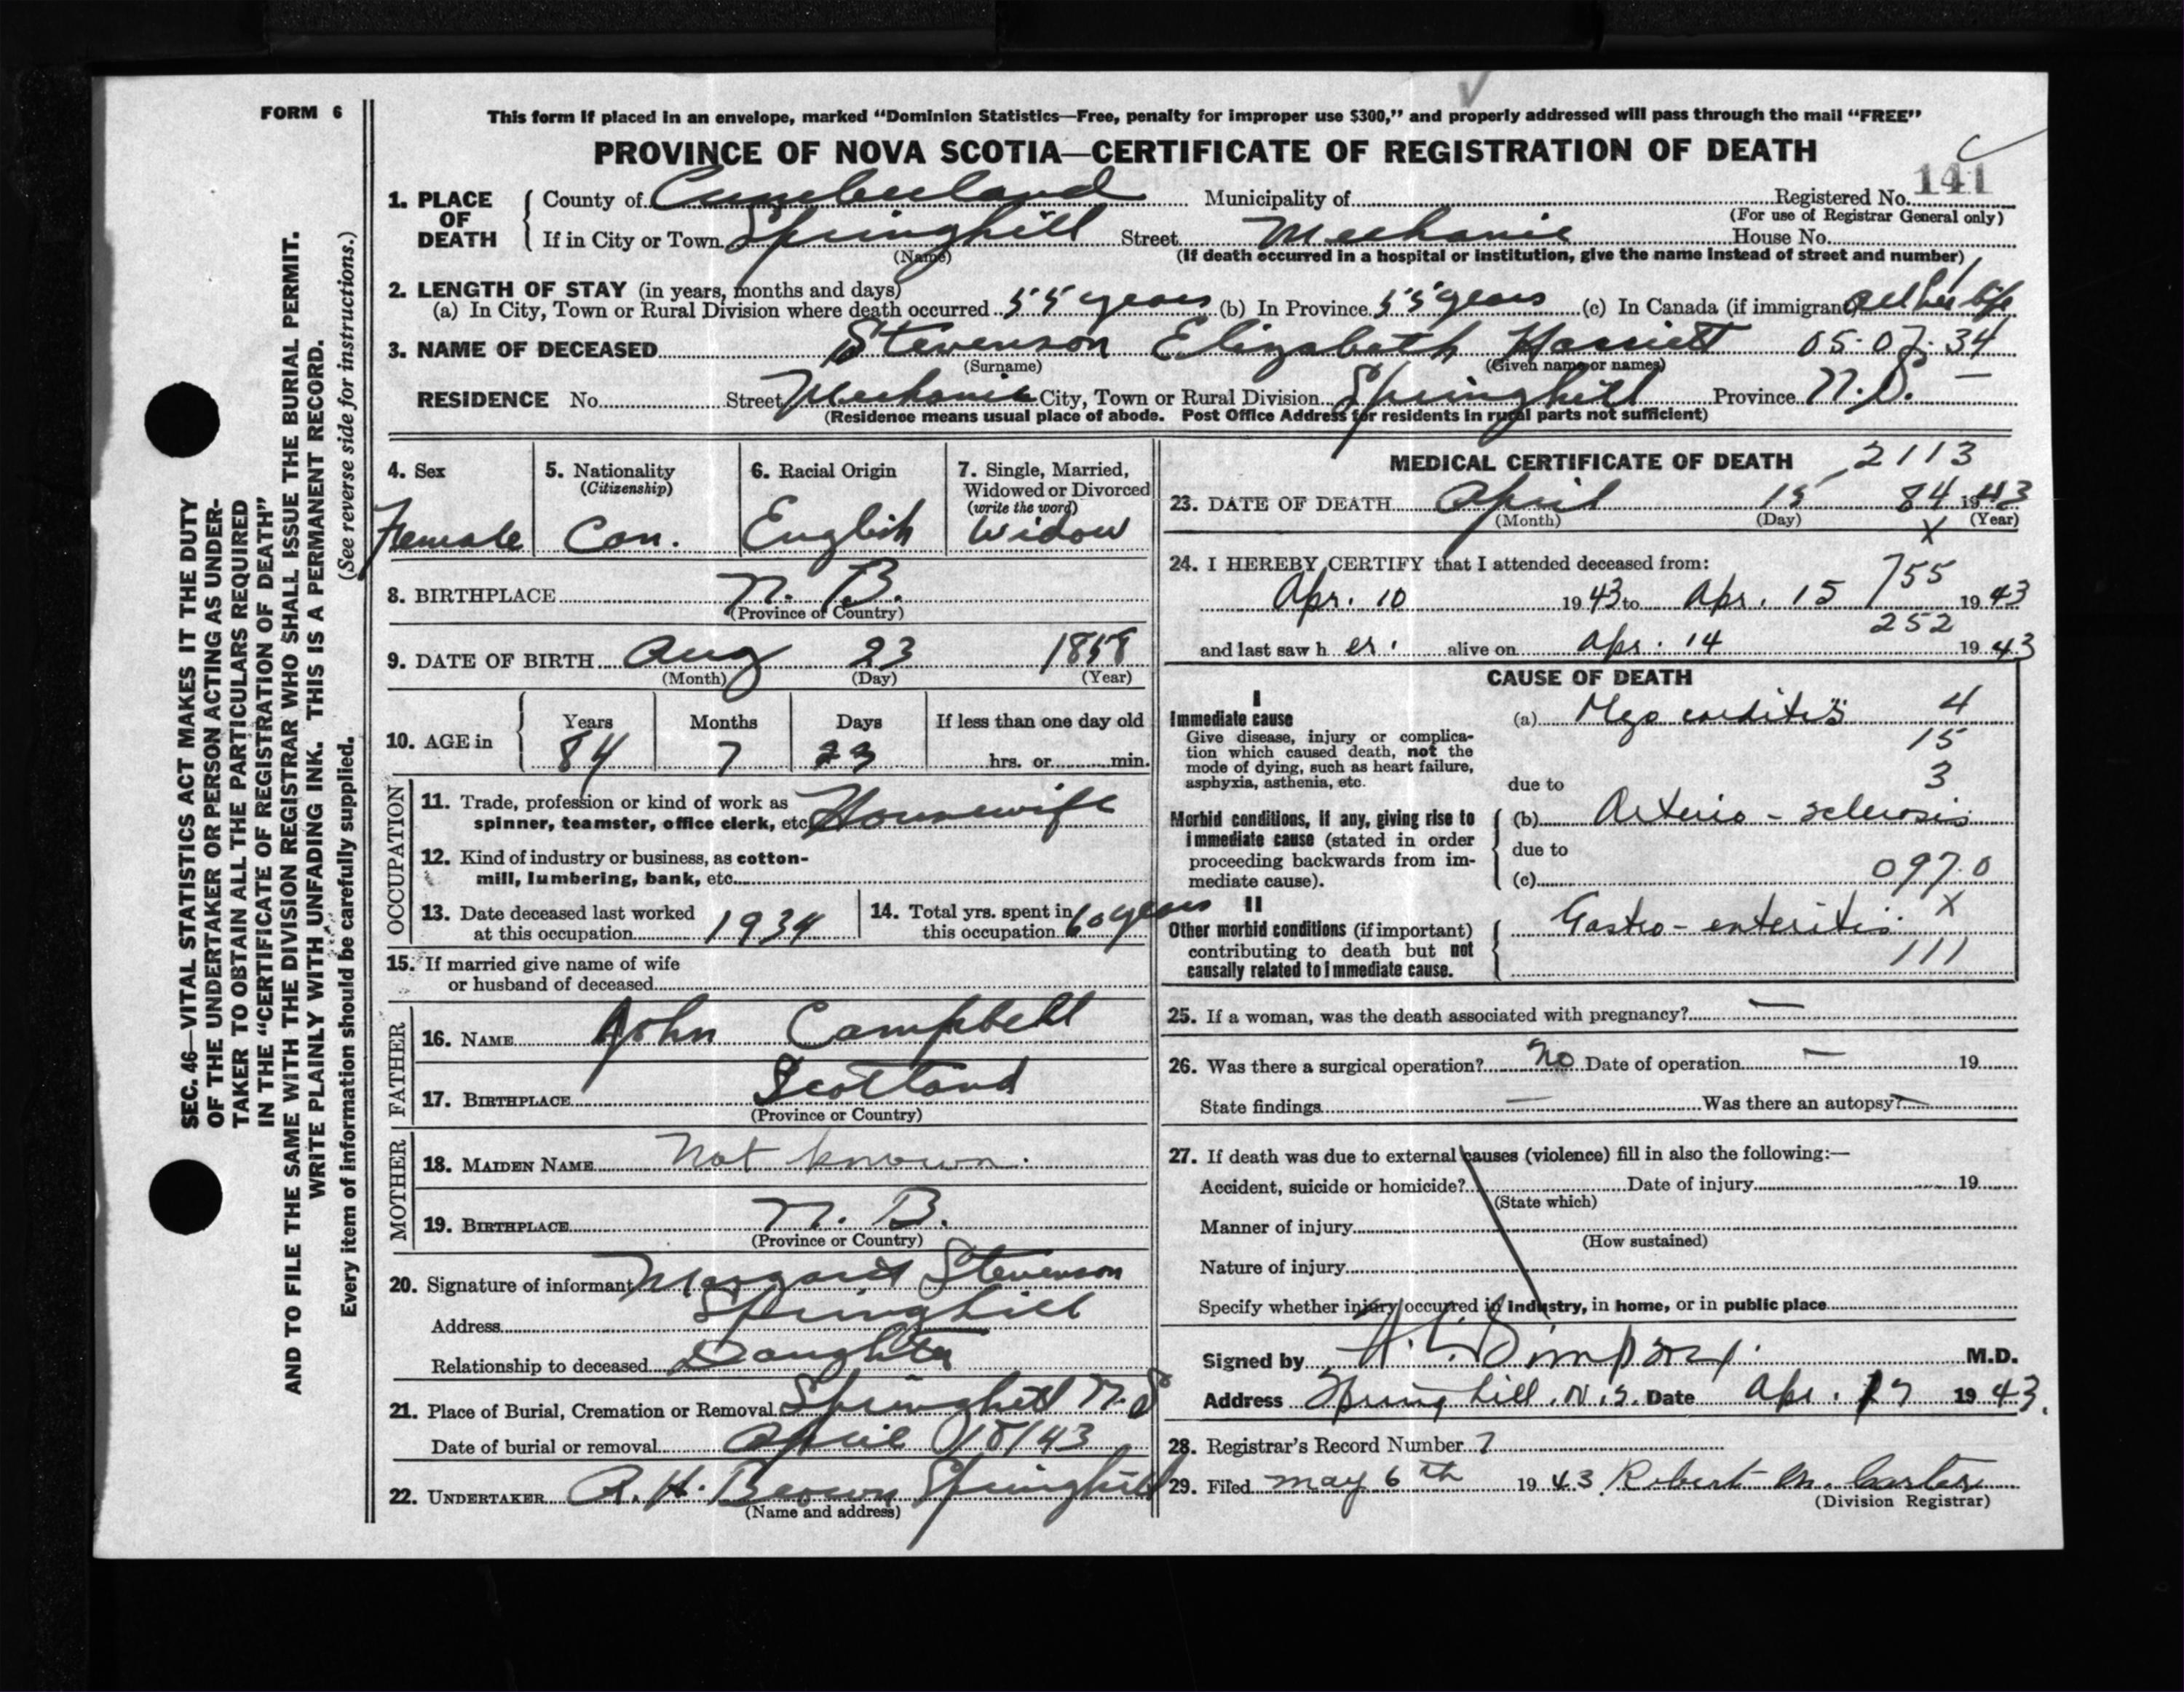 FORM 6
This form if placed in an envelope, marked "Dominion Statistics—Free, penalty for improper use $300," and properly addressed will pass through the mail "FREE"
PROVINCE OF NOVA SCOTIA—CERTIFICATE OF REGISTRATION OF DEATH
141
1. PLACE OF DEATH County of Cumberland Municipality of Registered No.
(For use of Registrar General only)
If in City or Town Springhill Street Mechanic House No.
(Name) (If death occurred in a hospital or institution, give the name instead of street and number)
2. LENGTH OF STAY (in years, months and days)
(a) In City, Town or Rural Division where death occurred 55 years (b) In Province 55 years (c) In Canada (if immigrant) all her life
3. NAME OF DECEASED Stevenson Elizabeth Harriett 05-07-34
(Surname) (Given name or names)
RESIDENCE No. Street Mechanic City, Town or Rural Division Springhill Province N.S. —
(Residence means usual place of abode. Post Office Address for residents in rural parts not sufficient)
4. Sex Female
5. Nationality (Citizenship) Can.
6. Racial Origin English
7. Single, Married, Widowed or Divorced (write the word) Widow
8. BIRTHPLACE N. B.
(Province or Country)
9. DATE OF BIRTH Aug 23 1858
(Month) (Day) (Year)
10. AGE in Years Months Days If less than one day old
84 7 23 hrs. or min.
OCCUPATION
11. Trade, profession or kind of work as spinner, teamster, office clerk, etc. Housewife
12. Kind of industry or business, as cotton-mill, lumbering, bank, etc.
13. Date deceased last worked at this occupation 1934
14. Total yrs. spent in this occupation 60 years
15. If married give name of wife or husband of deceased
FATHER
16. NAME John Campbell
17. BIRTHPLACE Scotland
(Province or Country)
MOTHER
18. MAIDEN NAME Not known.
19. BIRTHPLACE N. B.
(Province or Country)
20. Signature of informant Margaret Stevenson
Address Springhill
Relationship to deceased Daughter
21. Place of Burial, Cremation or Removal Springhill N.S
Date of burial or removal April 18/43
22. UNDERTAKER A. H. Brown Springhill
(Name and address)
MEDICAL CERTIFICATE OF DEATH 2113
23. DATE OF DEATH April 15 84 1943
(Month) (Day) (Year)
X
24. I HEREBY CERTIFY that I attended deceased from:
755
Apr. 10 1943 to Apr. 15 1943
252
and last saw h er. alive on Apr. 14 1943
CAUSE OF DEATH
I
Immediate cause
Give disease, injury or complication which caused death, not the mode of dying, such as heart failure, asphyxia, asthenia, etc.
(a) Myo carditis 4
15
3
due to
Morbid conditions, if any, giving rise to immediate cause (stated in order proceeding backwards from immediate cause).
(b) Arterio - sclerosis
due to
(c) 097.0
II
Other morbid conditions (if important) contributing to death but not causally related to immediate cause.
X
Gastro - enteritis.
111
25. If a woman, was the death associated with pregnancy? —
26. Was there a surgical operation? No Date of operation — 19
State findings — Was there an autopsy? —
27. If death was due to external causes (violence) fill in also the following:—
Accident, suicide or homicide? Date of injury 19
(State which)
Manner of injury
(How sustained)
Nature of injury
Specify whether injury occurred in Industry, in home, or in public place
Signed by Simpson. M.D.
Address Spring hill. N.S. Date Apr. 17 1943.
28. Registrar's Record Number 7
29. Filed May 6th 1943 Robert M. Carter
(Division Registrar)
SEC. 46—VITAL STATISTICS ACT MAKES IT THE DUTY
OF THE UNDERTAKER OR PERSON ACTING AS UNDER-
TAKER TO OBTAIN ALL THE PARTICULARS REQUIRED
IN THE "CERTIFICATE OF REGISTRATION OF DEATH"
AND TO FILE THE SAME WITH THE DIVISION REGISTRAR WHO SHALL ISSUE THE BURIAL PERMIT.
WRITE PLAINLY WITH UNFADING INK. THIS IS A PERMANENT RECORD.
Every item of information should be carefully supplied. (See reverse side for instructions.)